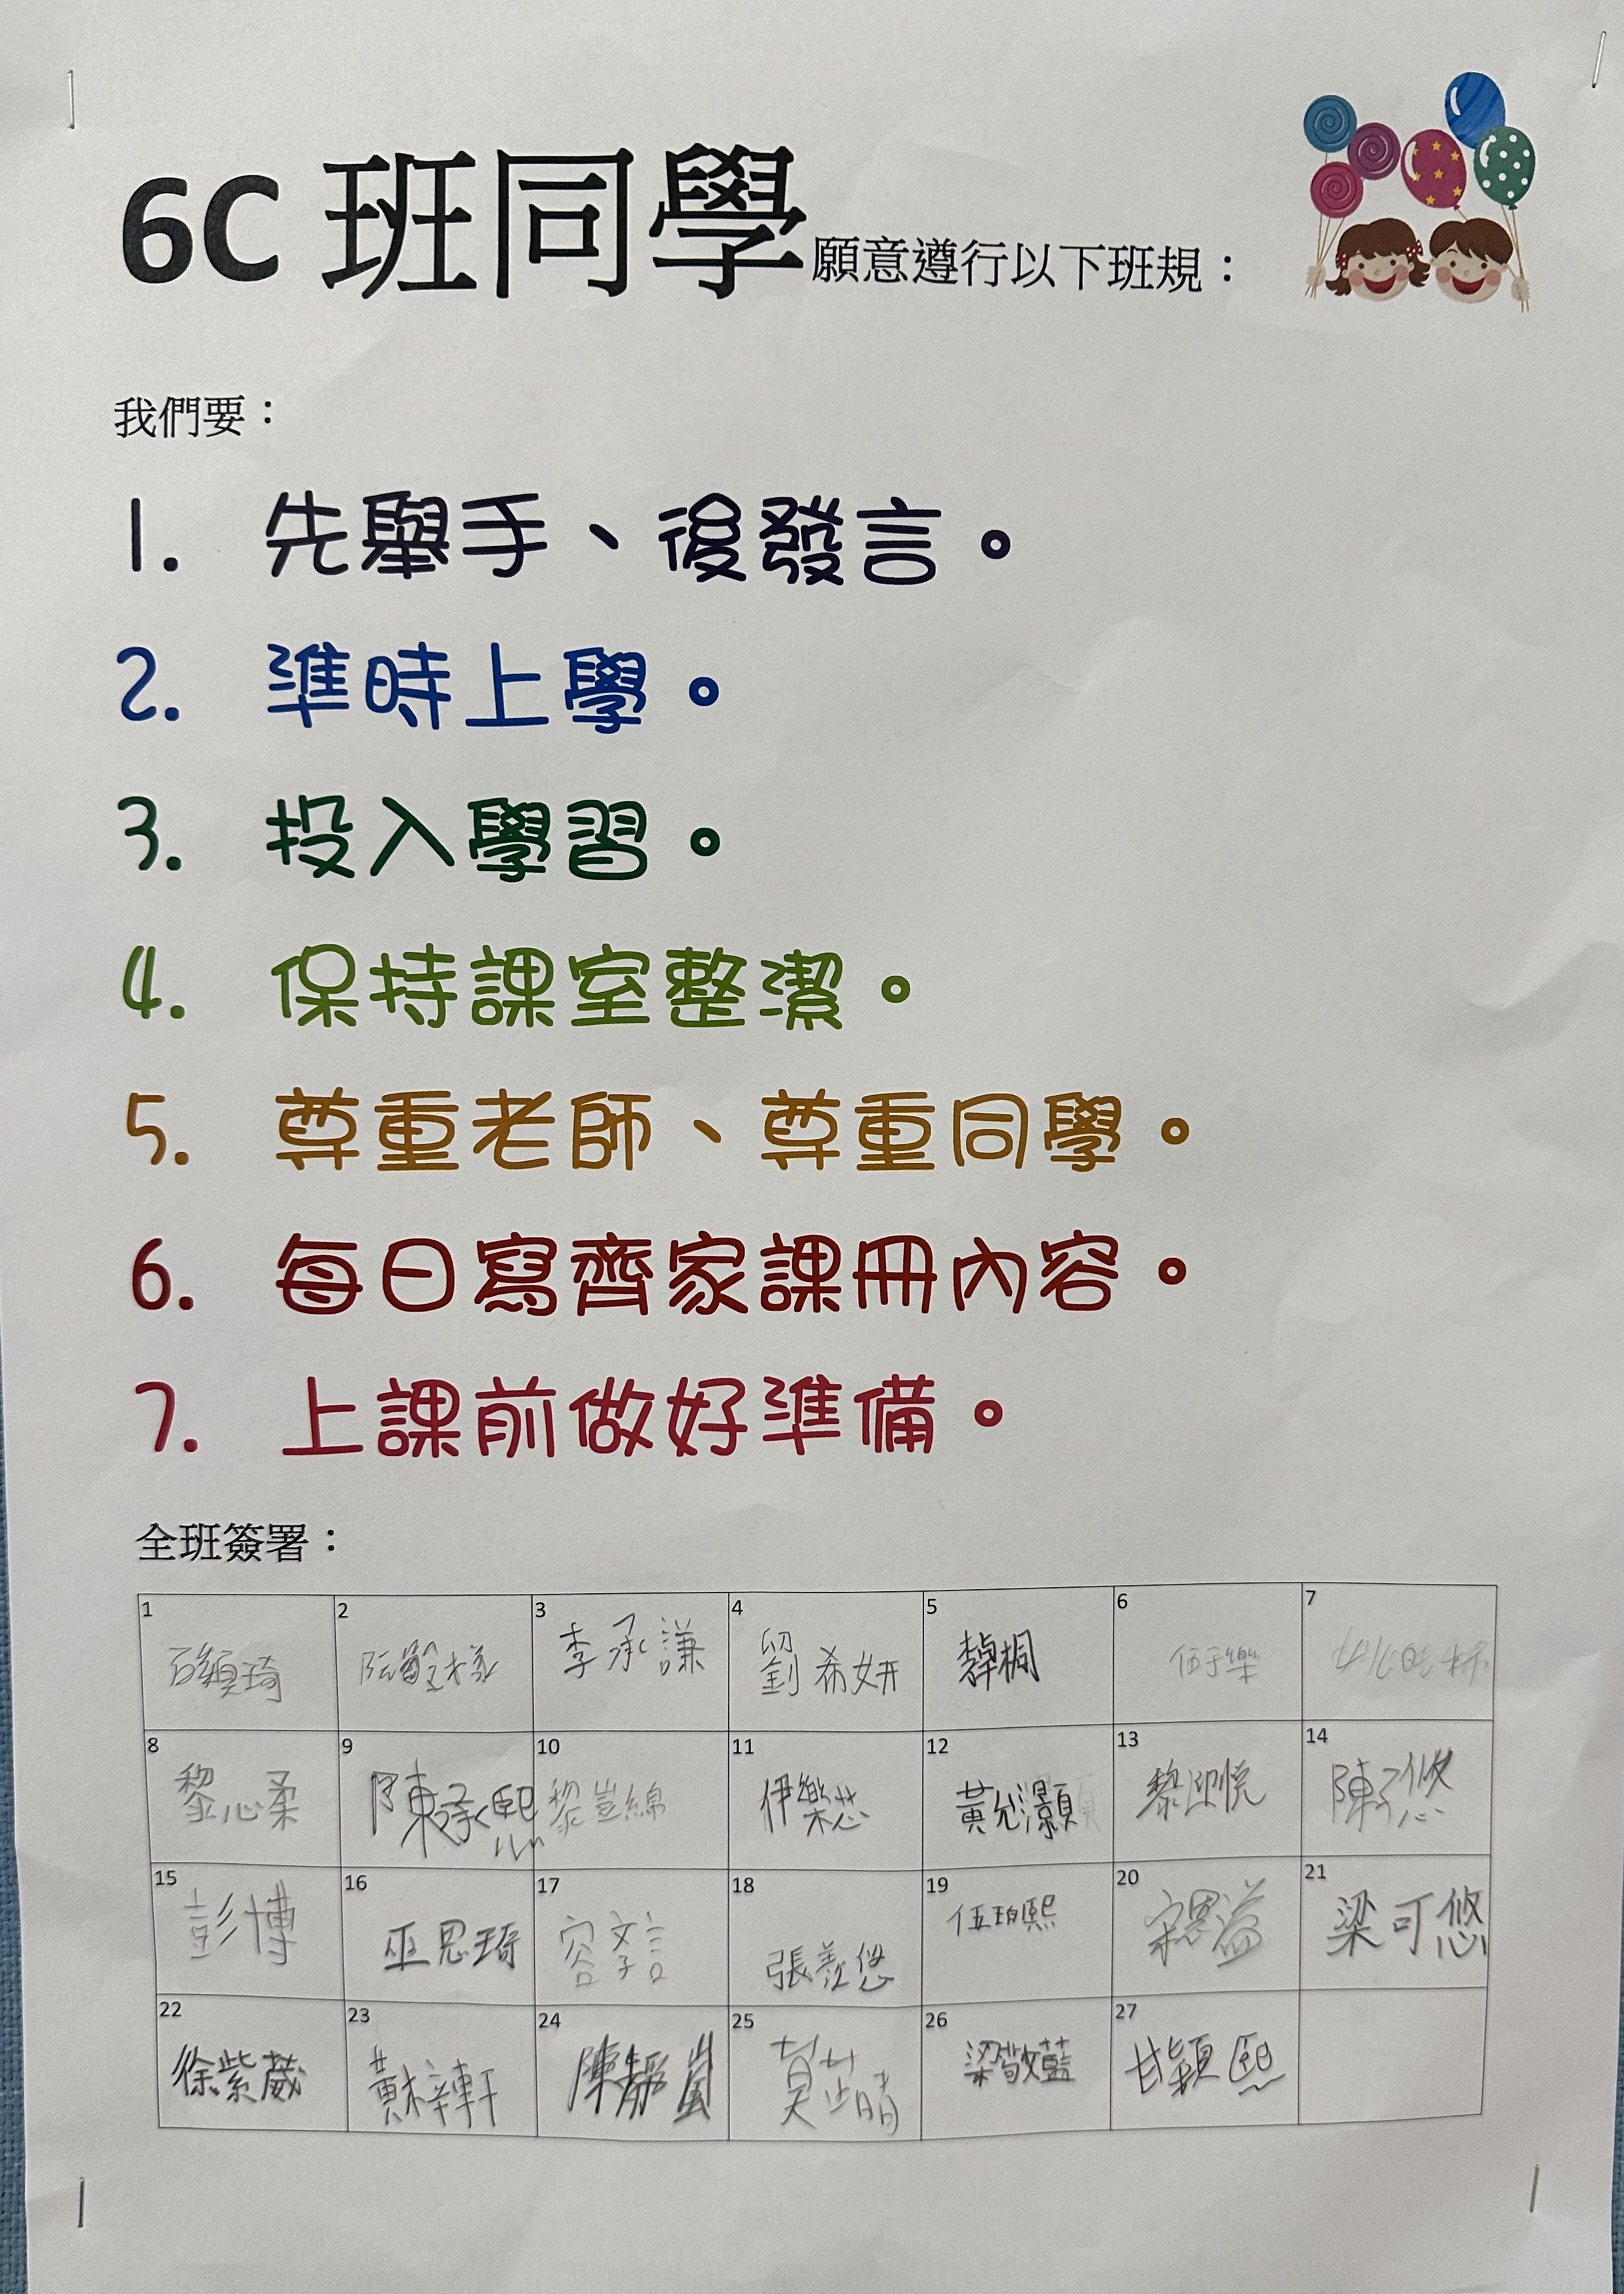 6C 班同學願意遵行以下班規：
我們要：
1. 先舉手、後發言。
2. 準時上學。
3. 投入學習。
4. 保持課室整潔。
5. 尊重老師、尊重同學。
6. 每日寫齊家課冊內容。
7. 上課前做好準備。
全班簽署：
1 2 3 4 5 6 7
李承謙 劉希妍 伍于樂
8 9 10 11 12 13 14
黎心柔 陳承熙 黎豈綿 伊樂芯 黃允灝 黎迎悅 陳子悠
15 16 17 18 19 20 21
彭博 巫思琦 容孝言 張羨悠 伍珀熙 宋恩溢 梁可悠
22 23 24 25 26 27
徐紫葳 黃梓軒 陳靜嵐 莫芷晴 梁敬藍 甘穎熙